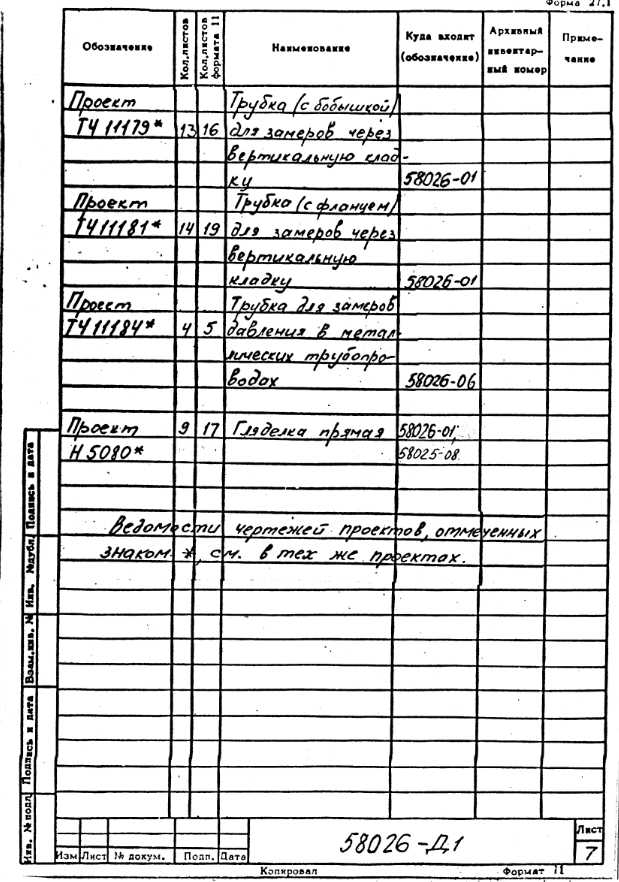 Форма 27.1
Обозначение Кол.листов Кол.листов формата 11 Наименование Куда входит (обозначение) Архивный инвентарный номер Примечание
Проект Трубка (с бобышкой)
ТЧ 11179* 13 16 для замеров через
вертикальную клад-
ку 58026-01
Проект Трубка (с фланцем)
ТЧ 11181* 14 19 для замеров через
вертикальную
кладку 58026-01
Проект Трубка для замеров
ТЧ 11184* 4 5 давления в метал-
лических трубопро-
водах 58026-06
Проект 9 17 Гляделка прямая 58026-01;
Н 5080* 58025-08
Ведомости чертежей проектов, отмеченных
знаком *, см. в тех же проектах.
Инв. № подл. Подпись и дата Взам.инв. № Инв. №дубл. Подпись и дата
58026-Д1
Лист
7
Изм Лист № докум. Подп. Дата
Копировал Формат 11